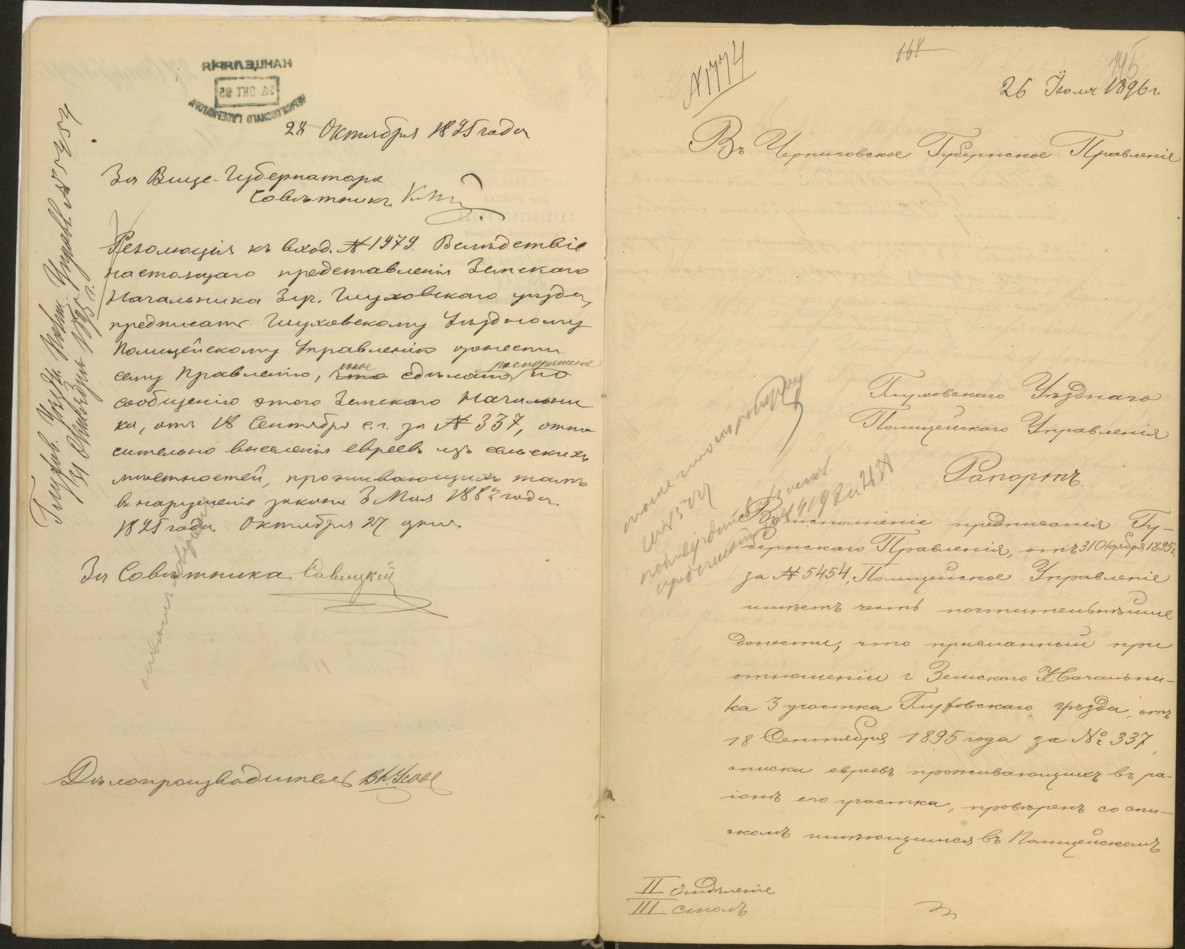 28 Октября 1895 года
За Вице-Губернатора
Совѣтникъ
Резолюція къ вход. № 1979. Вслѣдствіе
настоящаго представленія Земскаго
Начальника 3 уч. Глуховскаго уѣзда,
предписать Глуховскому Уѣздному
Полицейскому Управленію донести
сему Правленію, какое сдѣлано распоряженіе по
сообщенію этого Земскаго Начальни
ка, отъ 18 Сентября с.г. за № 337, отно
сительно выселенія евреевъ изъ сельскихъ
мѣстностей, проживающихъ тамъ
въ нарушеніе закона 3 Мая 1882 года
1895 года Октября 27 дня.
За Совѣтника Савицкій
Дѣлопроизводитель
Глухов. Уѣздн. Полиц. Управл. № 5454
31 Октября 1895 г.
N 1774
168
195
26 Іюля 1896 г
Въ Черниговское Губернское Правленіе
Глуховскаго Уѣзднаго
Полицейскаго Управленія
Рапортъ.
Во исполненіе предписанія Гу-
бернскаго Правленія, отъ 31 Октября 1895 г.
за № 5454, Полицейское Управленіе
имѣетъ честь почтительнѣйше
донести, что присланный при
отношеніи г. Земскаго Начальни-
ка 3 участка Глуховскаго уѣзда, отъ
18 Сентября 1895 года за № 337,
списки евреевъ проживающихъ въ ра-
іонѣ его участка, провѣренъ со спи-
скомъ имѣющимся въ Полицейскомъ
II Отдѣленіе
III столъ